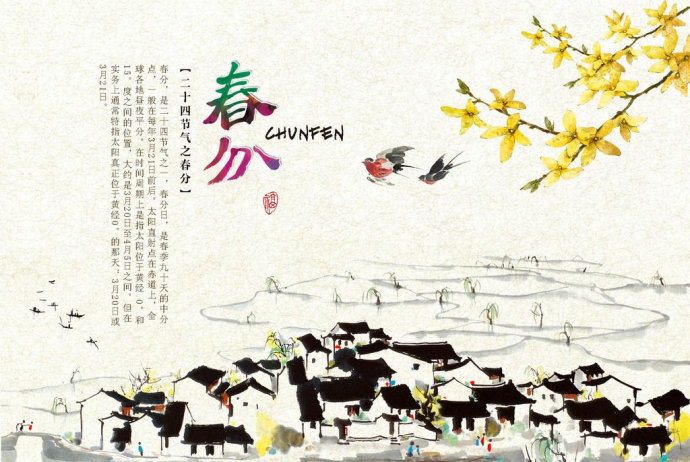 春分
CHUNFEN
【二十四节气之春分】
春分，是二十四节气之一，春分日，是春季九十天的中分
点，一般在每年3月21日前后，太阳直射点在赤道上，全
球各地昼夜平分。在时间周期上是指太阳位于黄经 0。和
15。度之间的位置，大约是3月20日至4月5日之间。但在
实务上通常特指太阳真正位于黄经0。的那天：3月20日或
3月21日。